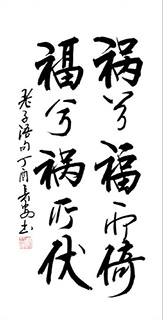 祸兮福所倚
福兮祸所伏
老子语句丁酉长安书